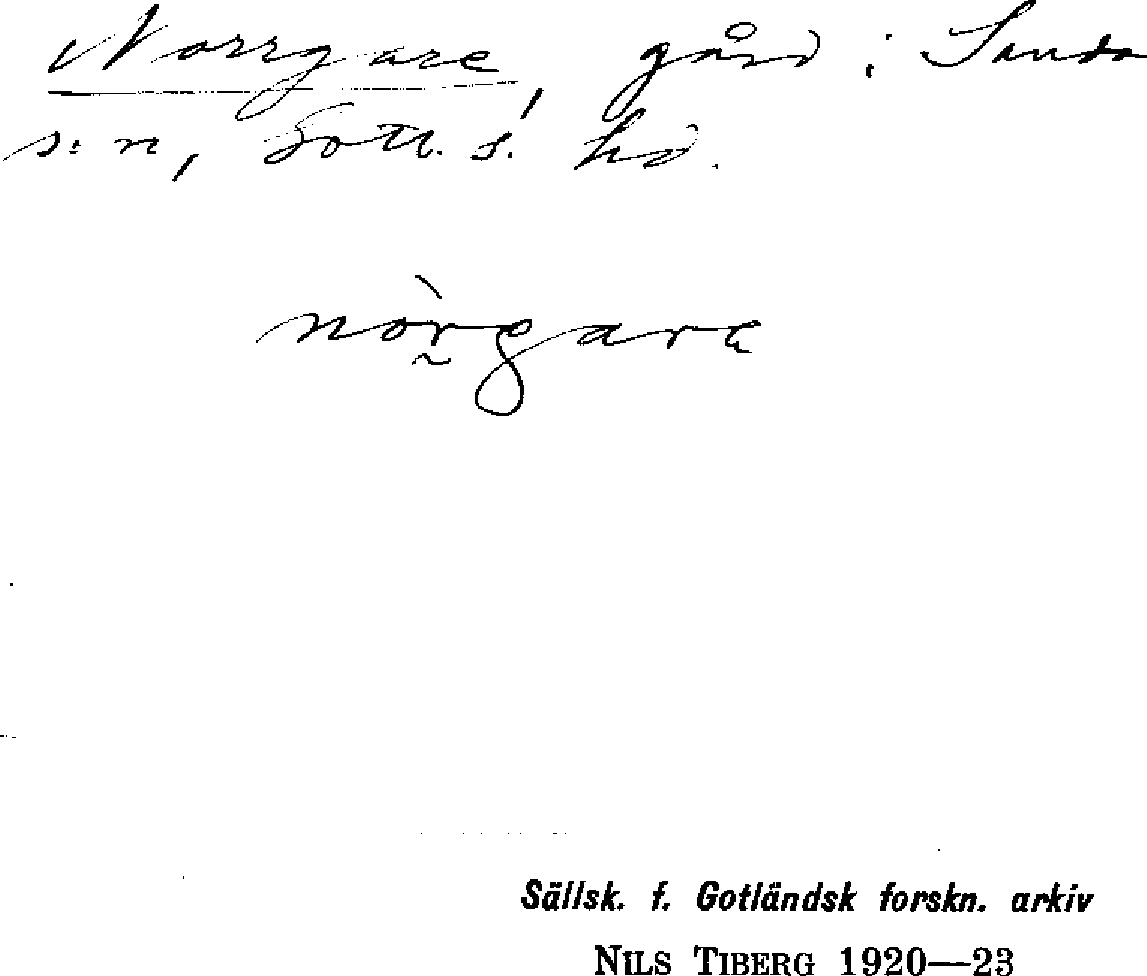 Norrgare, gård i Sanda
s:n, Gotl. s. hd.
nòr̰gara
Sällsk. f. Gotländsk forskn. arkiv
NILS TIBERG 1920—23